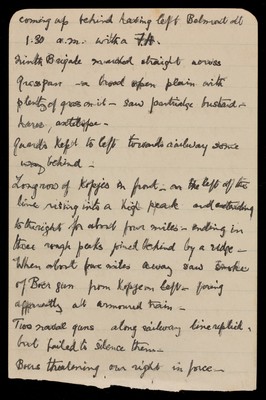 coming up behind having left Belmont at
1.30 a.m. with a F.H.
Ninth Brigade marched straight across
Grasspan - a broad open plain with
plenty of grass on it - saw partridge bustard -
hares, antelope -
Guards kept to left towards railway some
way behind -
Long row of Kopjes in front - on the left of the
line rising into a high peak and extending
to the right for about four miles - ending in
three rough peaks joined behind by a ridge -
When about four miles away saw smoke
of Boer gun from Kopje on left - firing
apparently at armoured train -
Two naval guns along railway line replied -
but failed to silence them -
Boers threatening our right in force -